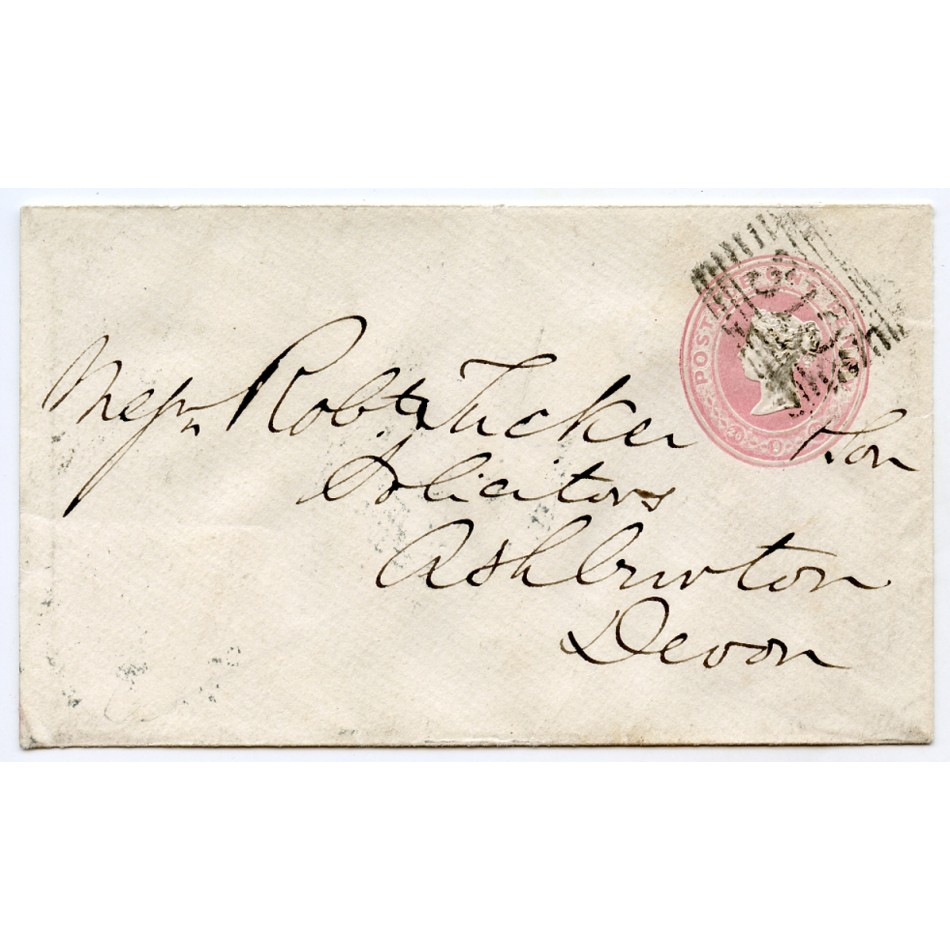 POSTAGE ONE PENNY
Messrs Robt Tucker & Son
Solicitors
Ashburton
Devon